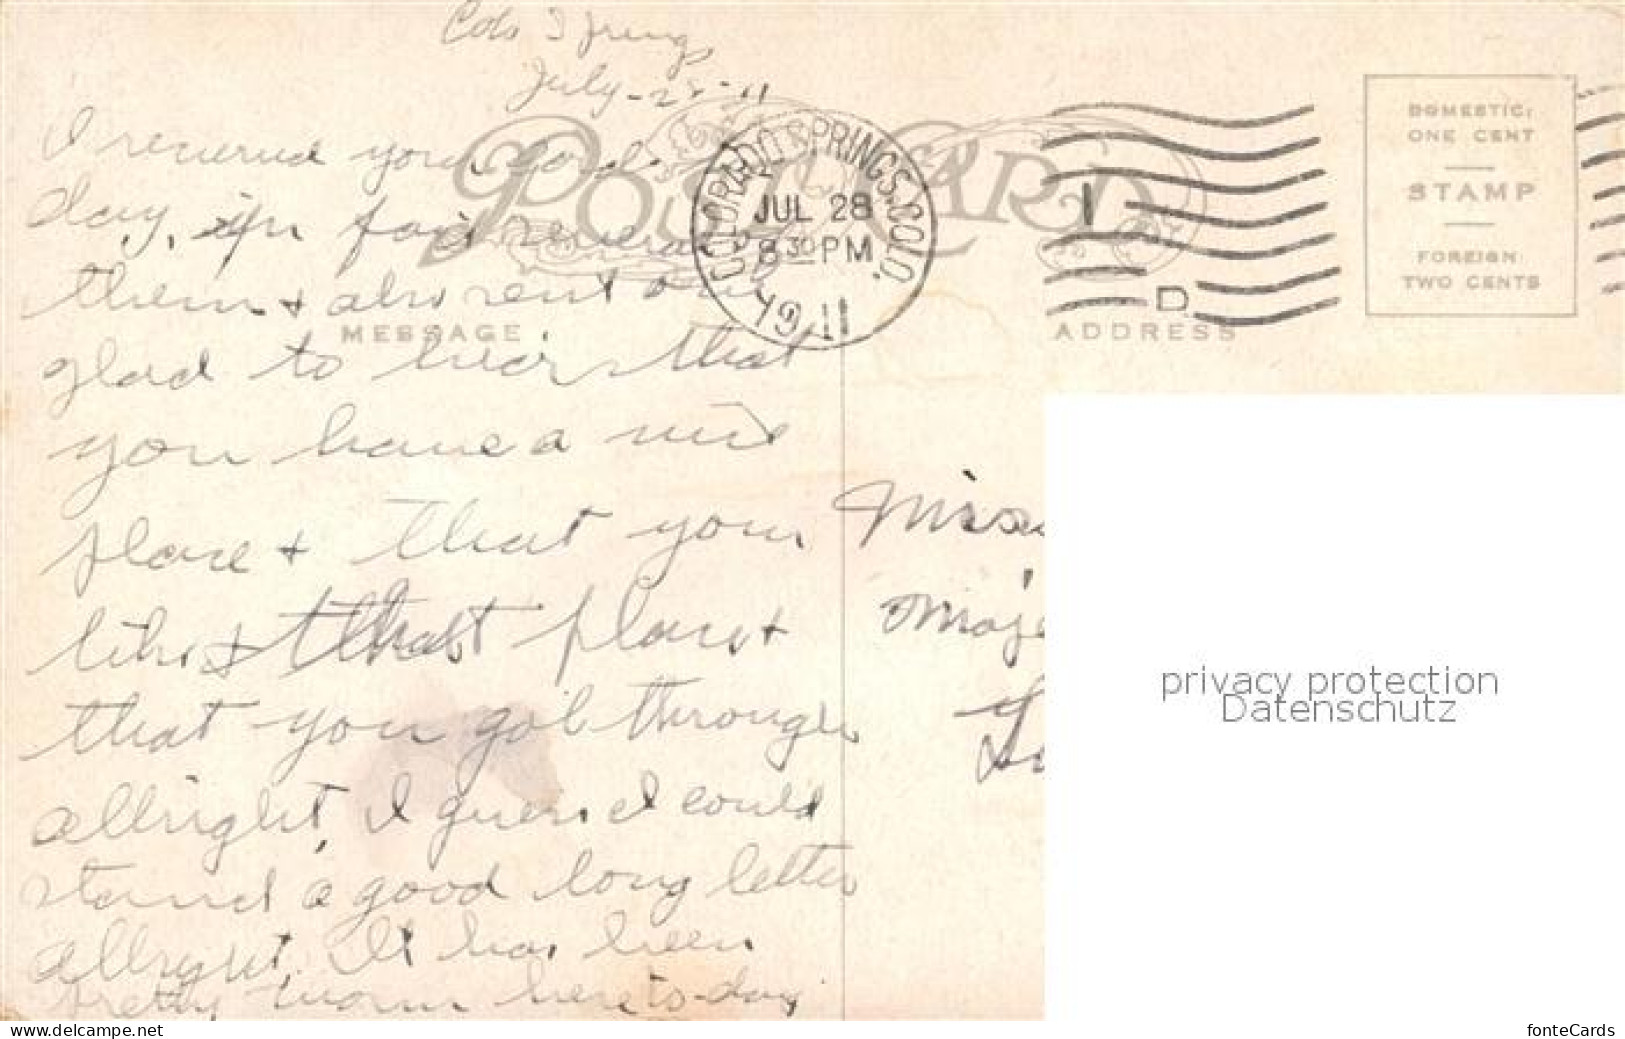 Colo Springs
July-28-11
I received your
day, in fact several of
them & also sent one
glad to hear that
you have a nice
place & that you
like that place &
that you got through
allright, I guess I could
stand a good long letter
allright. It has been
pretty warm here to-day
POST CARD
COLORADO SPRINGS, COLO.
JUL 28
8 30 PM
1911
1
D
MESSAGE
ADDRESS
DOMESTIC,
ONE CENT
STAMP
FOREIGN
TWO CENTS
Miss
privacy protection
Datenschutz
www.delcampe.net
fonteCards